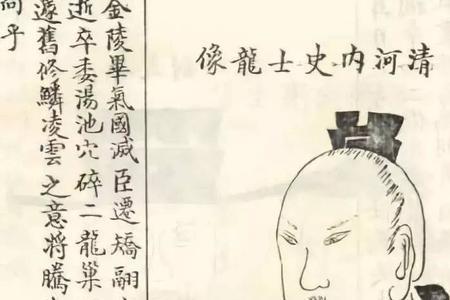 清河内史士龍像
金陵畢氣國滅臣遷矯翮
逝卒委湯池穴碎二龍巢
遽舊修鱗凌雲之意將騰
乎